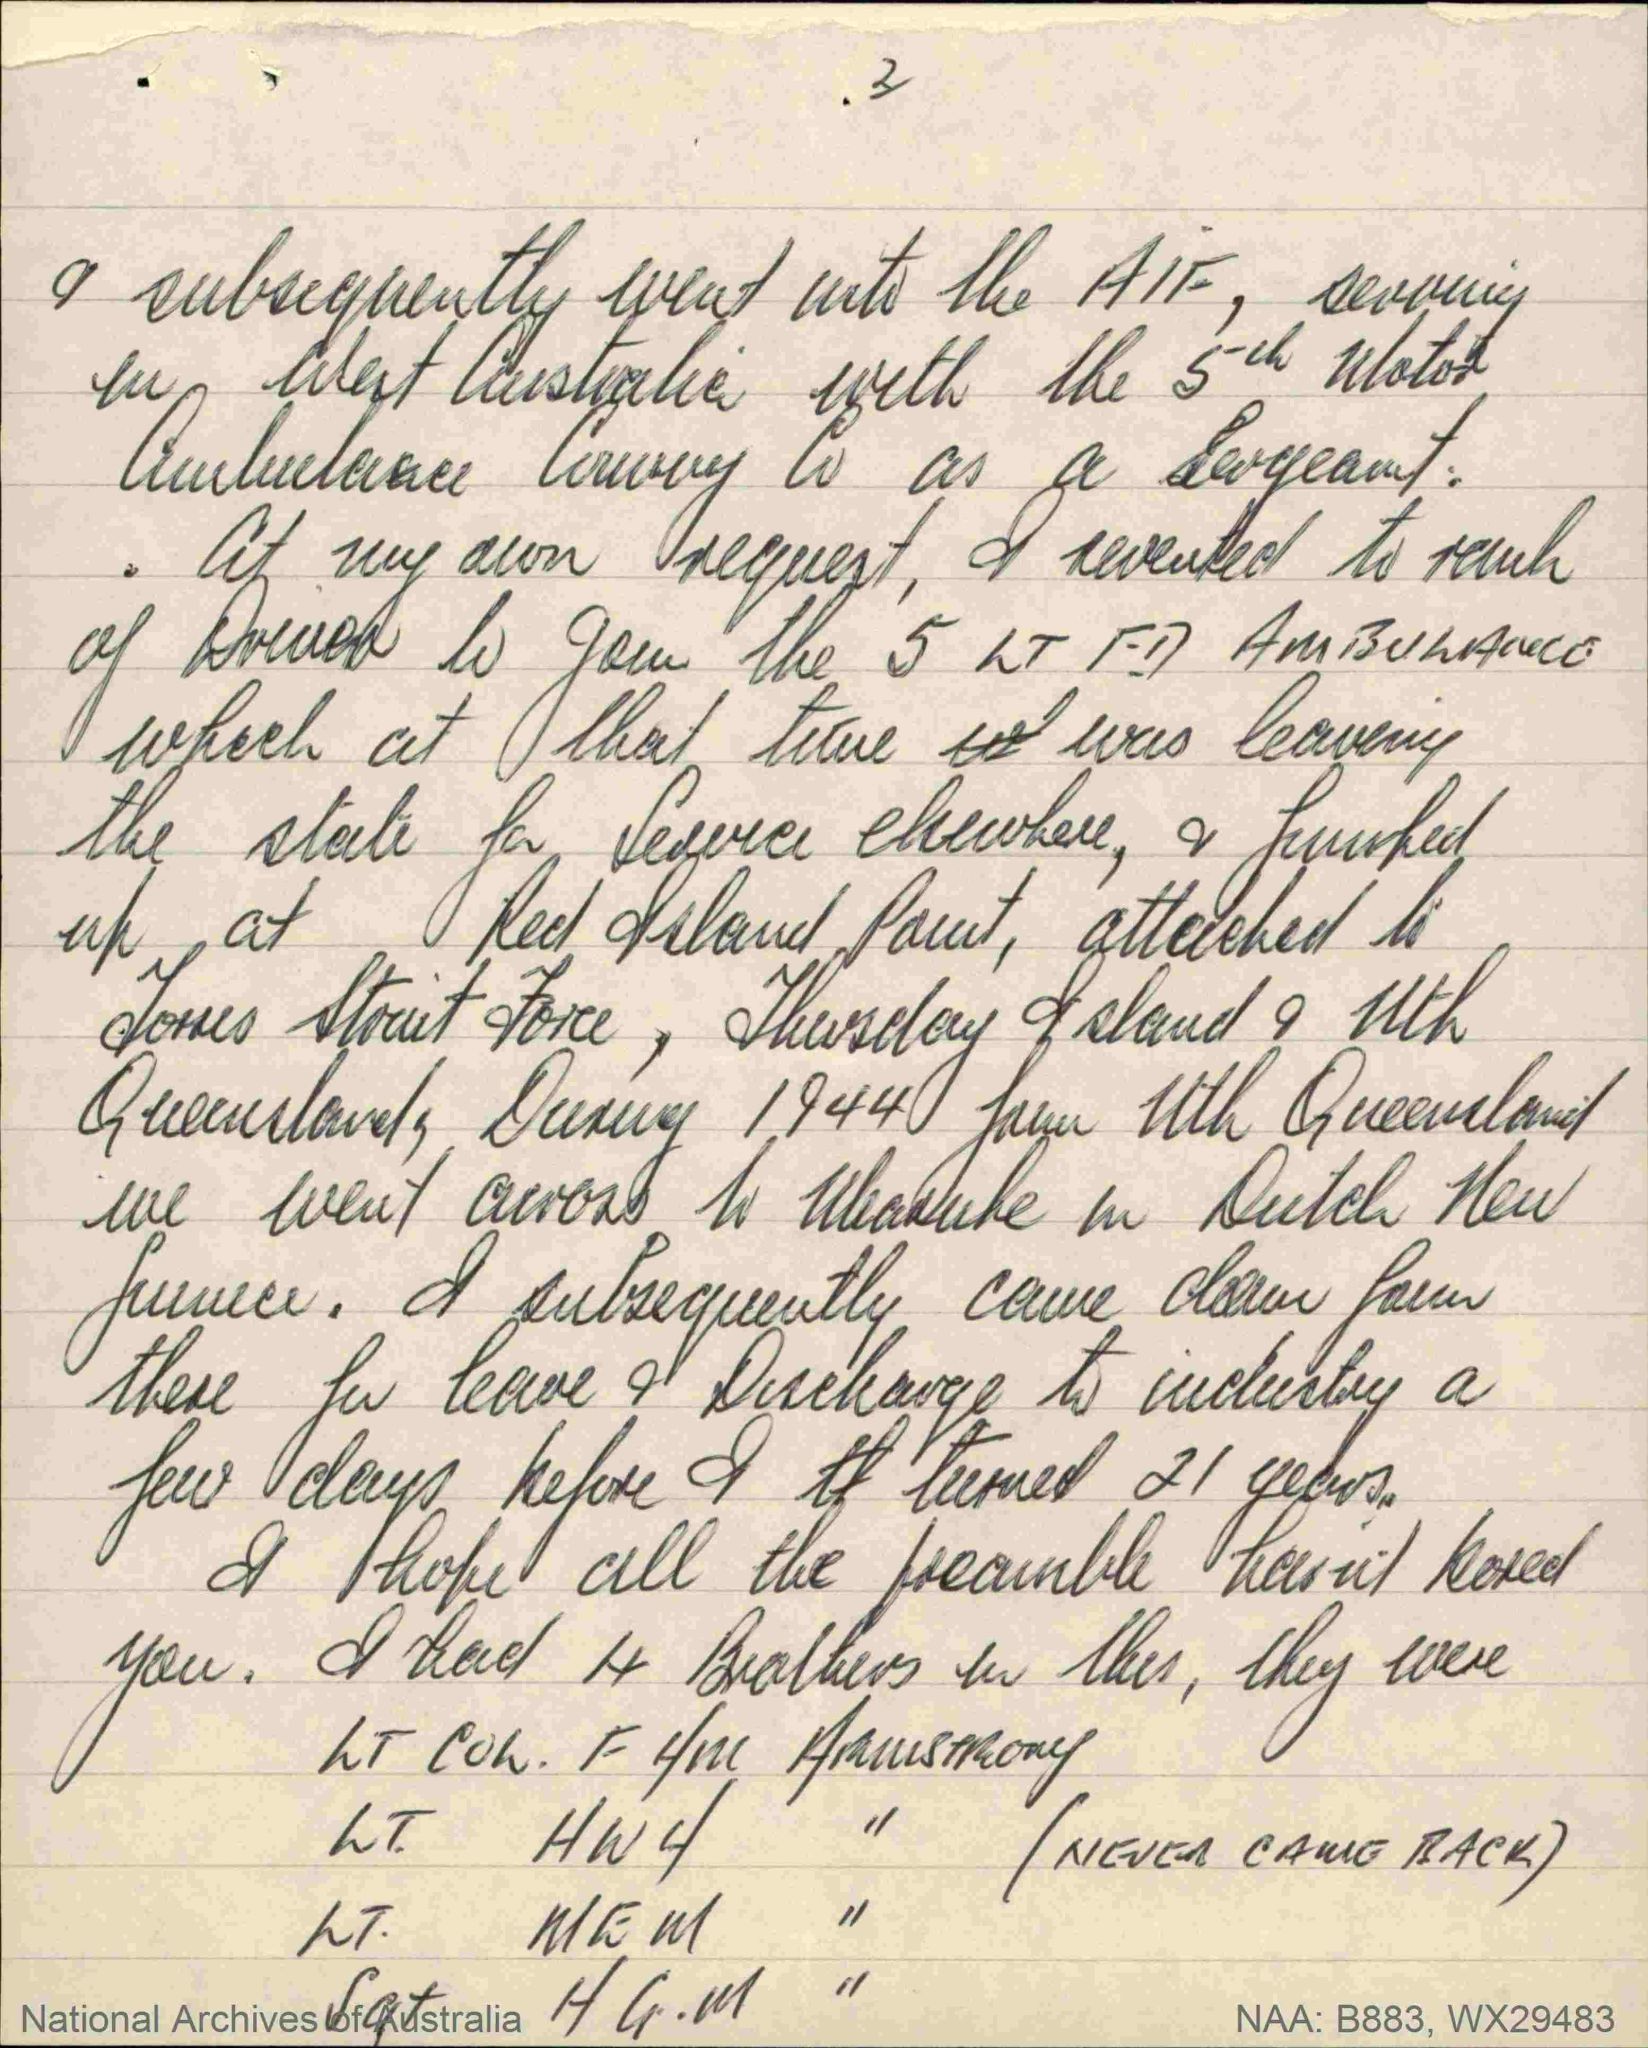 2
& subsequently went into the AIF, serving
in West Australia with the 5th Motor
Ambulance Convoy Co as a Sergeant.
At my own request, I reverted to rank
of Driver to join the 5 LT FD AMBULANCE
which at that time was leaving
the state for Service elsewhere, & finished
up at Red Island Point, attached to
Torres Strait Force, Thursday Island & Nth
Queensland, During 1944 from Nth Queensland
we went across to Merauke in Dutch New
Guinea. I subsequently came down from
there for leave & Discharge to industry a
few days before I turned 21 years.
I hope all the preamble hasn't bored
you. I had 4 Brothers in this, they were
LT COL. F M ARMSTRONG
LT. H W " (NEVER CAME BACK)
LT. M E M "
Sgt H G. M "
National Archives of Australia
NAA: B883, WX29483